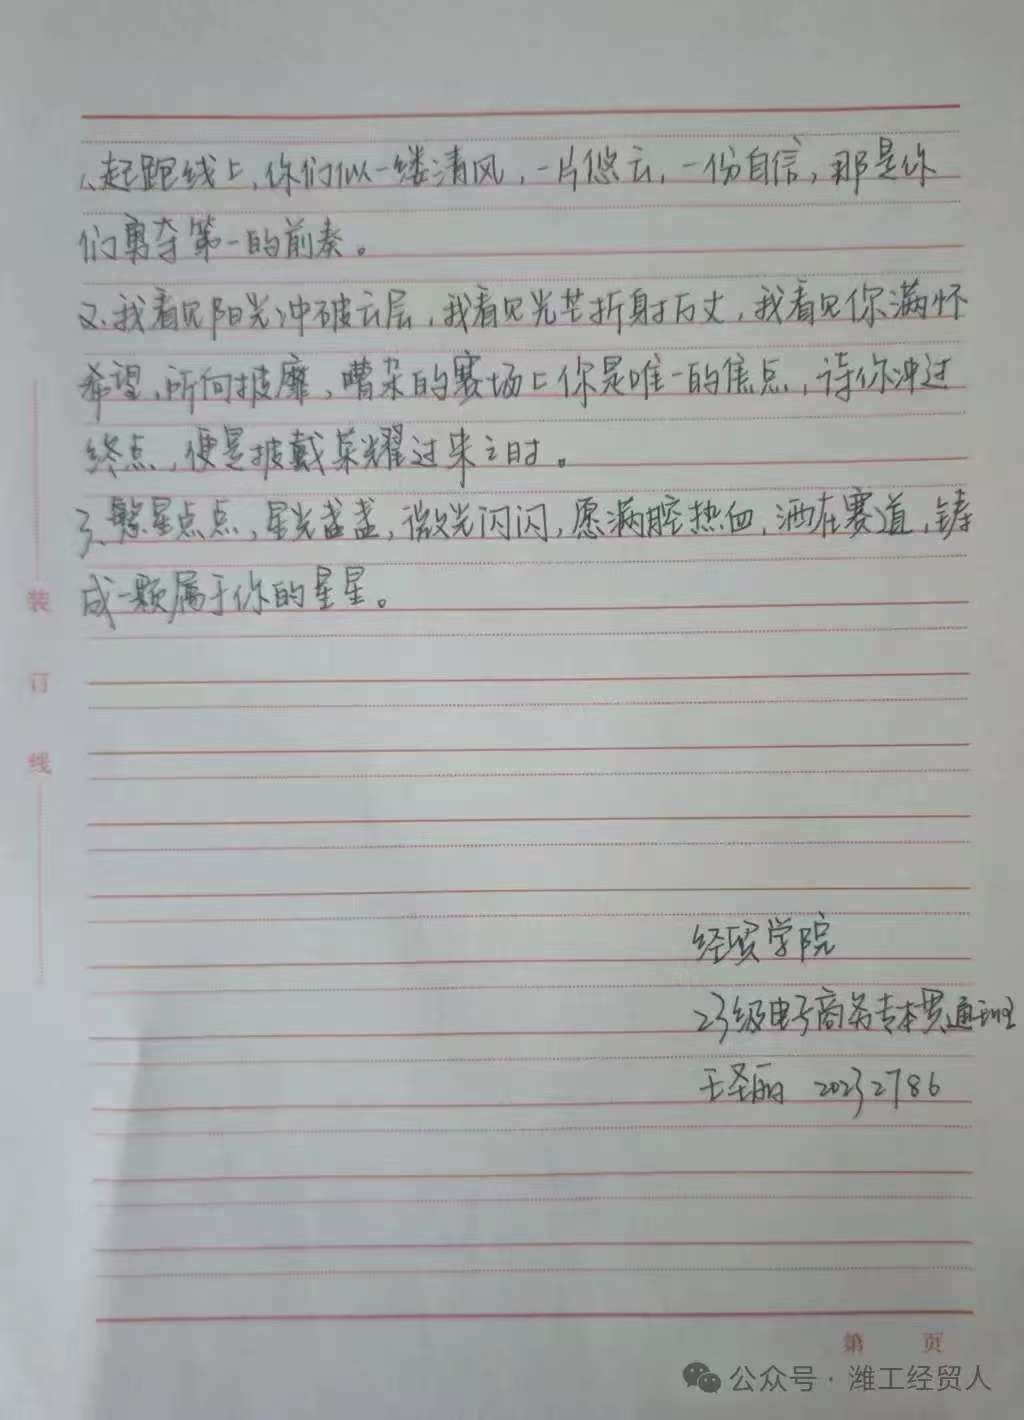 1、起跑线上，你们似一缕清风，一片悠云，一份自信，那是你
们勇夺第一的前奏。
2、我看见阳光冲破云层，我看见光芒折射万丈，我看见你满怀
希望，所向披靡，嘈杂的赛场上你是唯一的焦点，待你冲过
终点，便是披戴荣耀过来之时。
3、繁星点点，星光盏盏，微光闪闪，愿满腔热血，洒在赛道，铸
成一颗属于你的星星。
装
订
线
经贸学院
23级电子商务专本贯通班
王圣丽 20232786
第 页
公众号·潍工经贸人